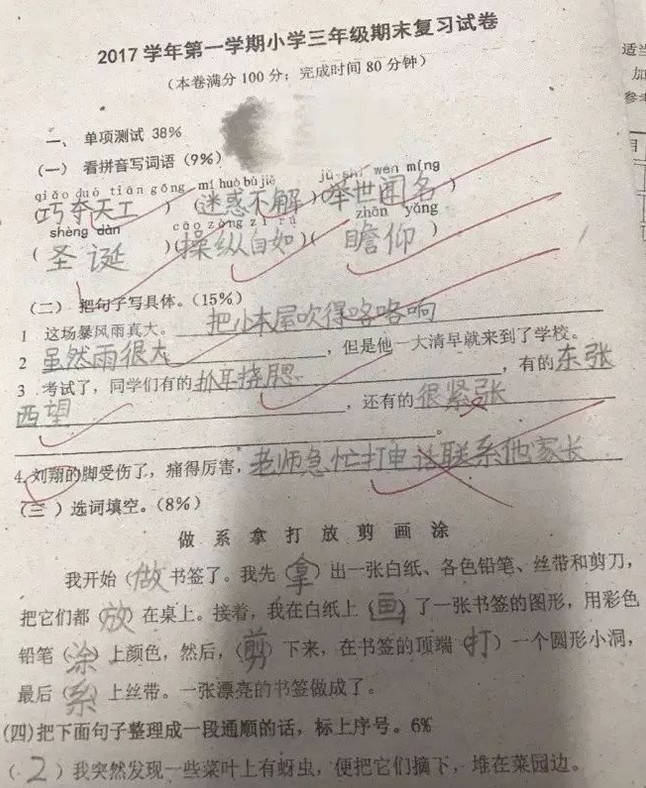 2017 学年第一学期小学三年级期末复习试卷
（本卷满分 100 分；完成时间 80 分钟）
一、 单项测试 38%
（一） 看拼音写词语（9%）
qiǎo duó tiān gōng mí huò bù jiě jǔ shì wén míng
（巧夺天工）（迷惑不解）（举世闻名）
shèng dàn cāo zòng zì rú zhān yǎng
（圣诞）（操纵自如）（瞻仰）
（二） 把句子写具体。（15%）
1 这场暴风雨真大。把小木屋吹得咯咯响
2 虽然雨很大，但是他一大清早就来到了学校。
3 考试了，同学们有的抓耳挠腮，有的东张
西望，还有的很紧张
。
4 刘翔的脚受伤了，痛得厉害，老师急忙打电话联系他家长
（三）选词填空。（8%）
做 系 拿 打 放 剪 画 涂
我开始（做）书签了。我先（拿）出一张白纸、各色铅笔、丝带和剪刀，
把它们都（放）在桌上。接着，我在白纸上（画）了一张书签的图形，用彩色
铅笔（涂）上颜色，然后，（剪）下来，在书签的顶端（打）一个圆形小洞，
最后（系）上丝带。一张漂亮的书签做成了。
(四)把下面句子整理成一段通顺的话，标上序号。6%
（2）我突然发现一些菜叶上有蚜虫，便把它们摘下，堆在菜园边。